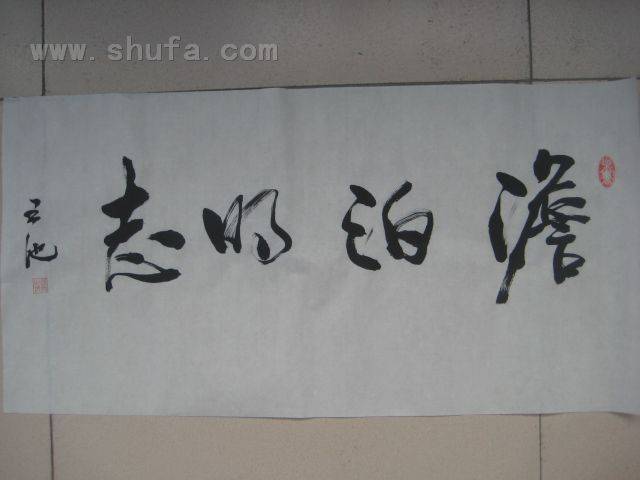 www.shufa.com
澹泊明志
云池